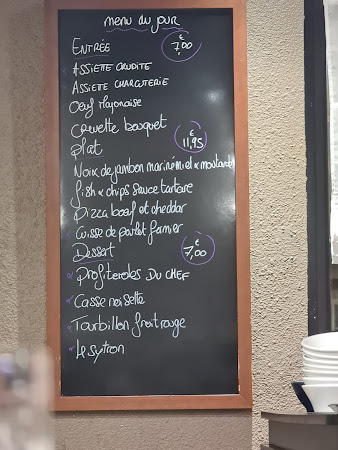 menu du jour
ENTRÉE € 7,00
ASSIETTE CRUDITE
ASSIETTE CHARCUTERIE
Oeuf Mayonaise
Crevette bouquet
plat € 11,95
Noix de jambon mariné miel & moutarde
fish & chips sauce tartare
Pizza boeuf et cheddar
Cuisse de poulet fermier
Dessert € 7,00
Profiteroles DU CHEF
Casse noisette
Tourbillon fruit rouge
le sytron